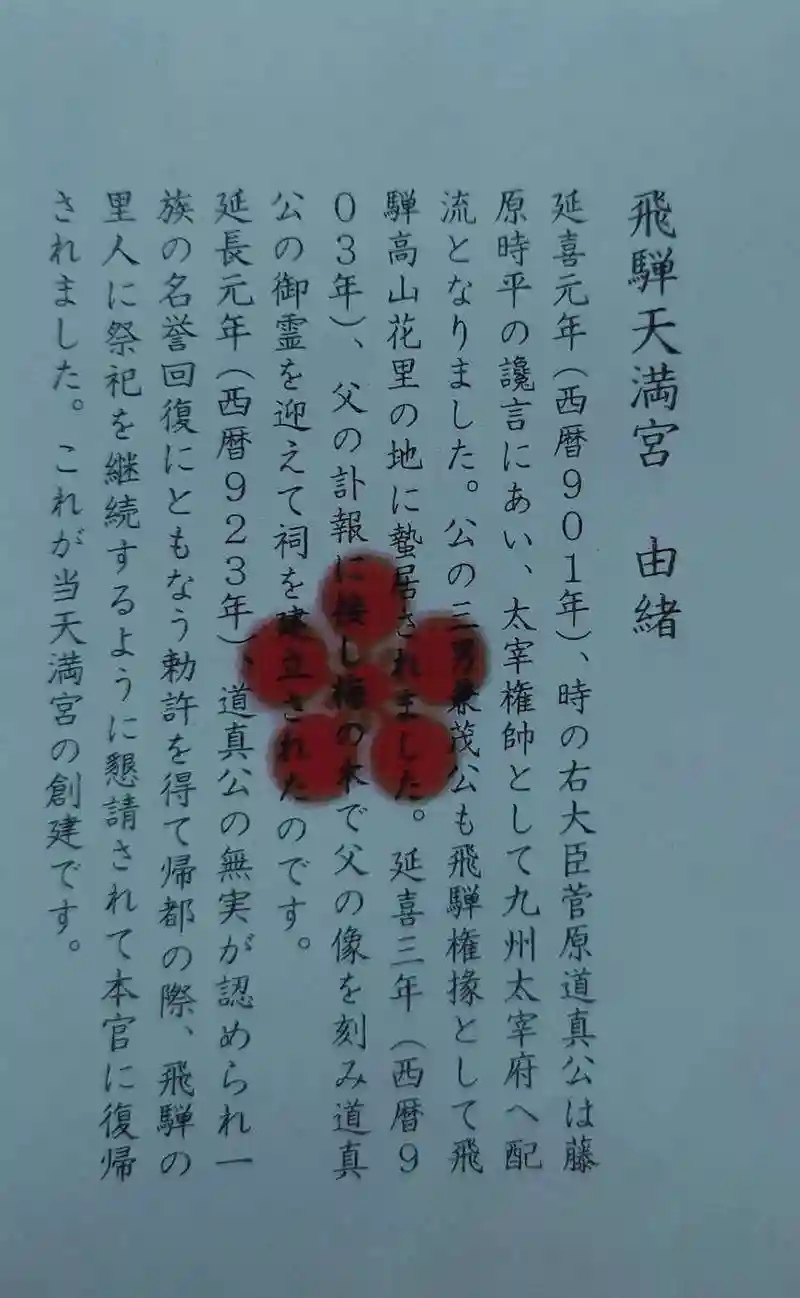 飛騨天満宮 由緒
延喜元年(西暦901年)、時の右大臣菅原道真公は藤
原時平の讒言にあい、太宰権帥として九州太宰府へ配
流となりました。公の三男兼茂公も飛騨権掾として飛
騨高山花里の地に蟄居されました。延喜三年(西暦9
03年)、父の訃報に接し梅の木で父の像を刻み道真
公の御霊を迎えて祠を建立されたのです。
延長元年(西暦923年)、道真公の無実が認められ一
族の名誉回復にともなう勅許を得て帰都の際、飛騨の
里人に祭祀を継続するように懇請されて本官に復帰
されました。これが当天満宮の創建です。